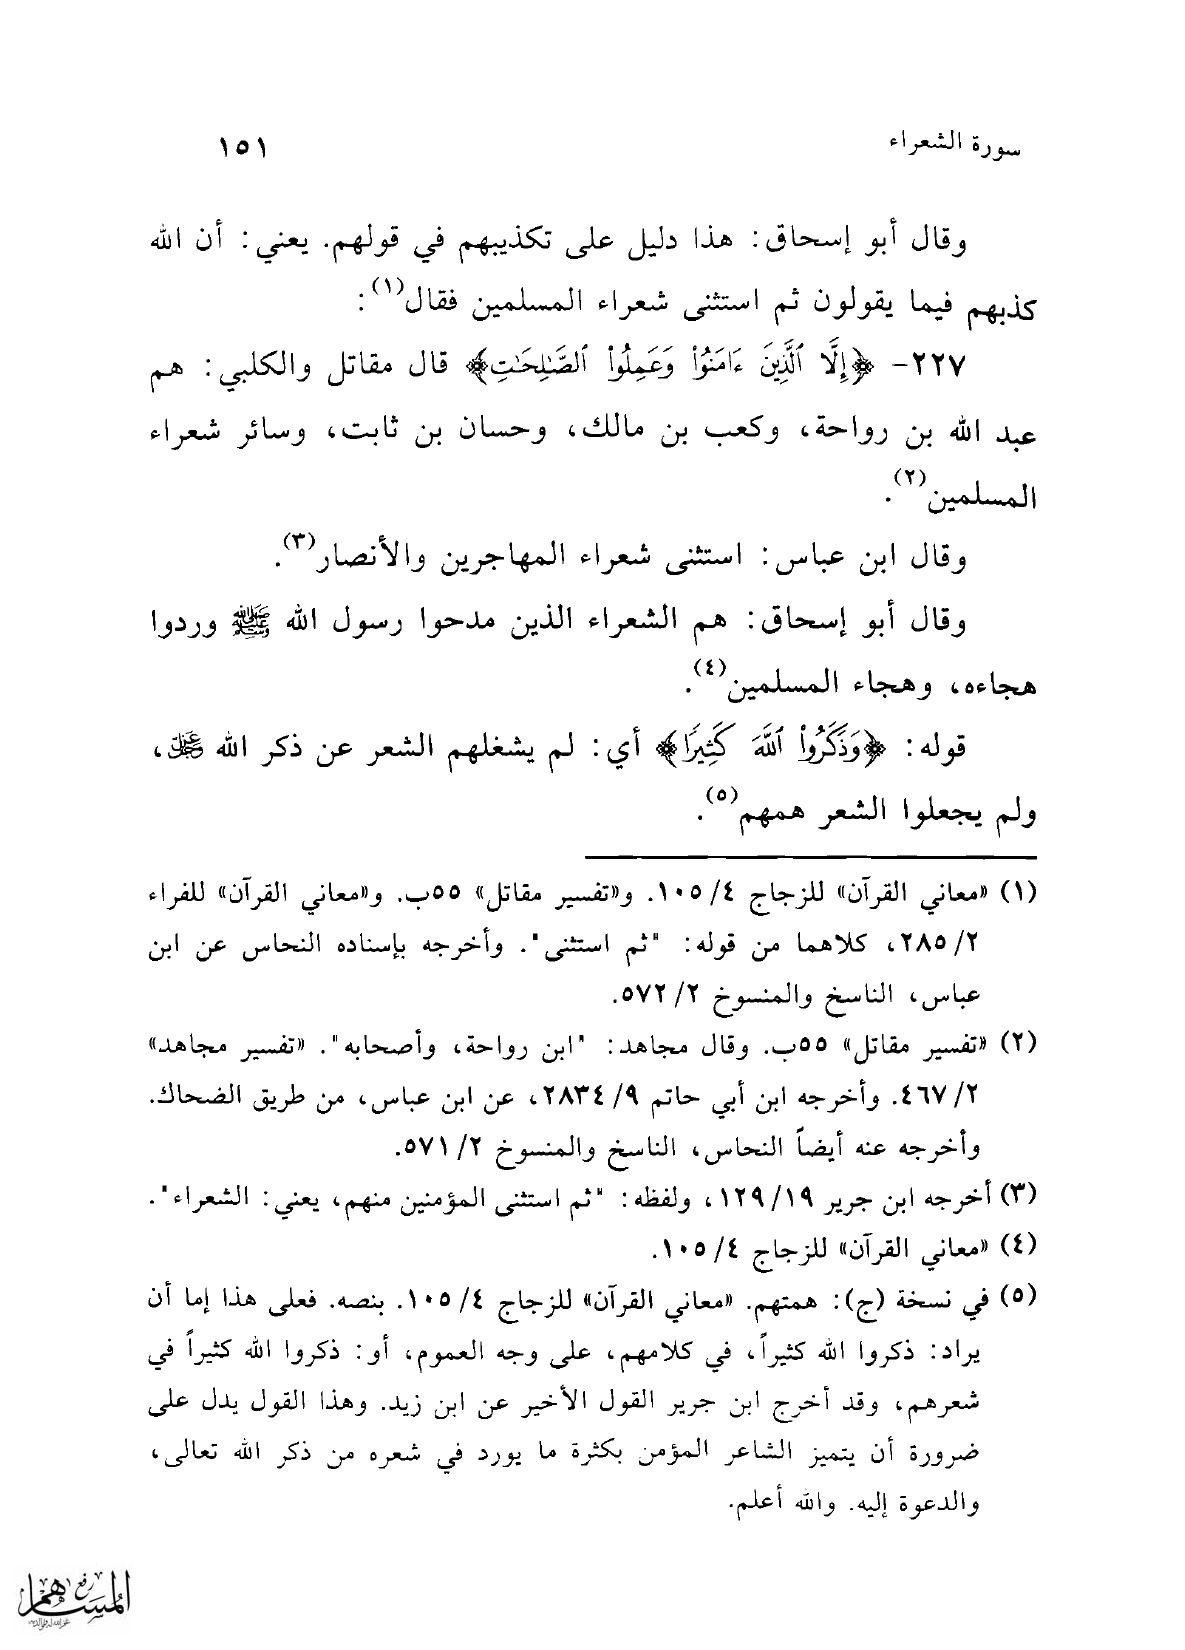 سورة الشعراء
١٥١
وقال أبو إسحاق: هذا دليل على تكذيبهم في قولهم. يعني: أن الله
كذبهم فيما يقولون ثم استثنى شعراء المسلمين فقال(١):
٢٢٧- ﴿إِلَّا ٱلَّذِينَ ءَامَنُواْ وَعَمِلُواْ ٱلصَّٰلِحَٰتِ﴾ قال مقاتل والكلبي: هم
عبد الله بن رواحة، وكعب بن مالك، وحسان بن ثابت، وسائر شعراء
المسلمين(٢).
وقال ابن عباس: استثنى شعراء المهاجرين والأنصار(٣).
وقال أبو إسحاق: هم الشعراء الذين مدحوا رسول الله ﷺ وردوا
هجاءه، وهجاء المسلمين(٤).
قوله: ﴿وَذَكَرُواْ ٱللَّهَ كَثِيرًا﴾ أي: لم يشغلهم الشعر عن ذكر الله عز وجل،
ولم يجعلوا الشعر همهم(٥).
(١) «معاني القرآن» للزجاج ٤/ ١٠٥. و«تفسير مقاتل» ٥٥ب. و«معاني القرآن» للفراء
٢/ ٢٨٥، كلاهما من قوله: "ثم استثنى". وأخرجه بإسناده النحاس عن ابن
عباس، الناسخ والمنسوخ ٢/ ٥٧٢.
(٢) «تفسير مقاتل» ٥٥ب. وقال مجاهد: "ابن رواحة، وأصحابه". «تفسير مجاهد»
٢/ ٤٦٧. وأخرجه ابن أبي حاتم ٩/ ٢٨٣٤، عن ابن عباس، من طريق الضحاك.
وأخرجه عنه أيضاً النحاس، الناسخ والمنسوخ ٢/ ٥٧١.
(٣) أخرجه ابن جرير ١٩/ ١٢٩، ولفظه: "ثم استثنى المؤمنين منهم، يعني: الشعراء".
(٤) «معاني القرآن» للزجاج ٤/ ١٠٥.
(٥) في نسخة (ج): همتهم. «معاني القرآن» للزجاج ٤/ ١٠٥. بنصه. فعلى هذا إما أن
يراد: ذكروا الله كثيراً، في كلامهم، على وجه العموم، أو: ذكروا الله كثيراً في
شعرهم، وقد أخرج ابن جرير القول الأخير عن ابن زيد. وهذا القول يدل على
ضرورة أن يتميز الشاعر المؤمن بكثرة ما يورد في شعره من ذكر الله تعالى،
والدعوة إليه. والله أعلم.
رفع
المساهم